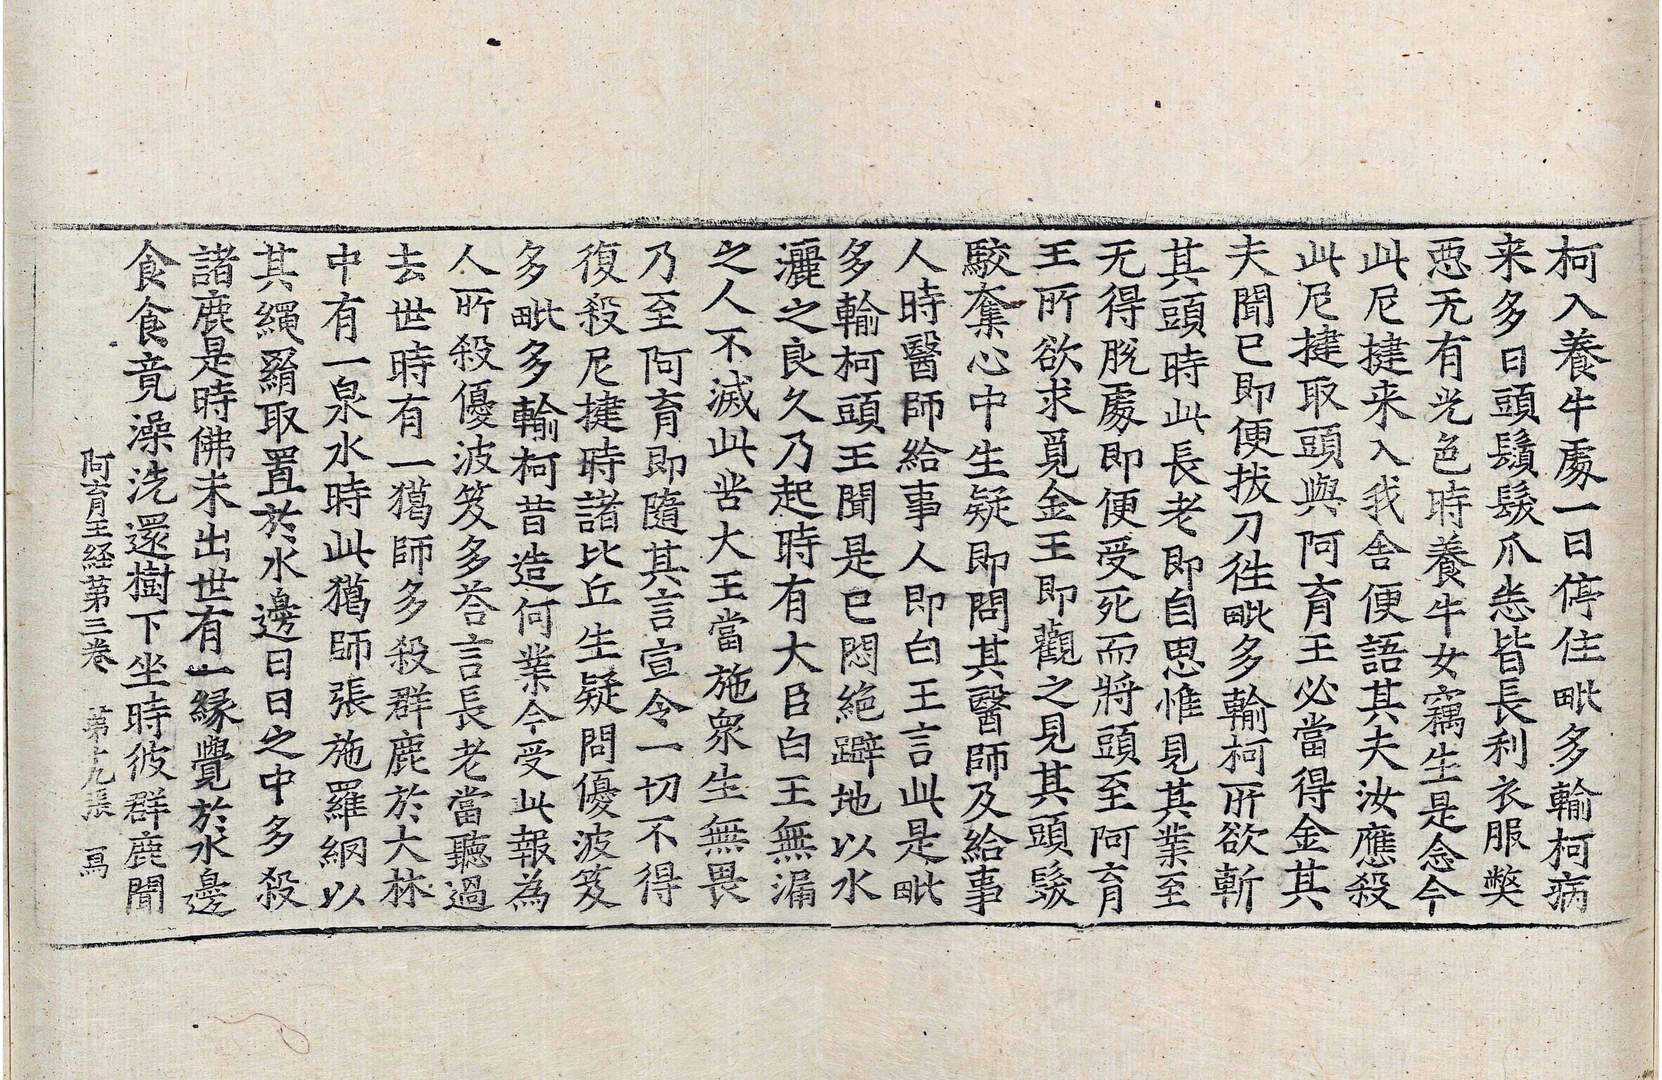 柯入養牛處一日停住毗多輸柯病
来多日頭鬚髮爪悉皆長利衣服弊
惡无有光色時養牛女竊生是念今
此尼揵来入我舍便語其夫汝應殺
此尼揵取頭與阿育王必當得金其
夫聞已即便拔刀徃毗多輸柯所欲斬
其頭時此長老即自思惟見其業至
无得脫處即便受死而將頭至阿育
王所欲求覓金王即觀之見其頭髮
駮奪心中生疑即問其醫師及給事
人時醫師給事人即白王言此是毗
多輸柯頭王聞是已悶絶躃地以水
灑之良久乃起時有大臣白王無漏
之人不滅此苦大王當施衆生無畏
乃至阿育即隨其言宣令一切不得
復殺尼揵時諸比丘生疑問優波笈
多毗多輸柯昔造何業今受此報為
人所殺優波笈多荅言長老當聽過
去世時有一獦師多殺群鹿於大林
中有一泉水時此獦師張施羅網以
其繩羂取置於水邊日日之中多殺
諸鹿是時佛未出世有一緣覺於水邊
食食竟澡洗還樹下坐時彼群鹿聞
阿育王経第三卷 第十九張 寫